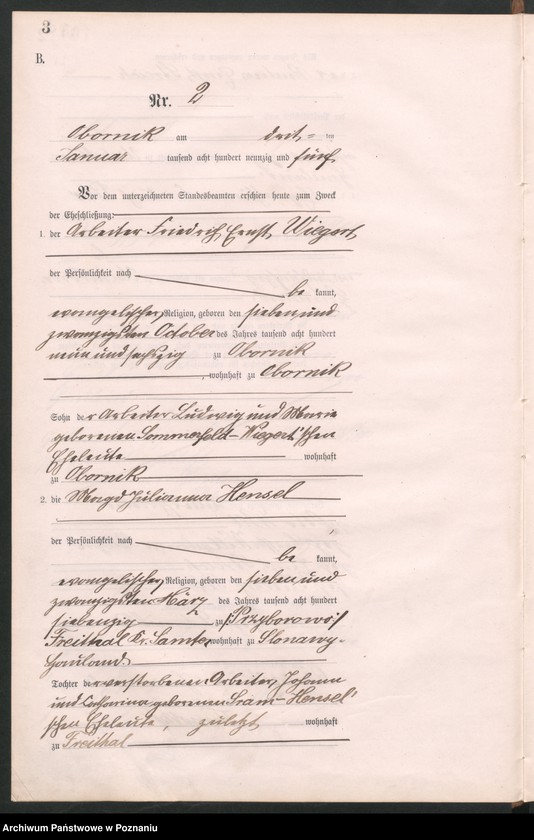 3
B.
Nr. 2
Obornik am drit= ten
Januar tausend acht hundert neunzig und fünf
Vor dem unterzeichneten Standesbeamten erschien heute zum Zweck
der Eheschließung:
1. der Arbeiter Friedrich Ernst Wiegert,
der Persönlichkeit nach
be kannt,
evangelischer Religion, geboren den sieben und
zwanzigsten October des Jahres tausend acht hundert
neun und sechzig zu Obornik
, wohnhaft zu Obornik
Sohn der Arbeiter Ludwig und Marie
geborenen Sommerfeld-Wiegert'schen
Eheleute wohnhaft
zu Obornik
2. die Magd Julianna Hensel
,
der Persönlichkeit nach
be kannt,
evangelischer Religion, geboren den sieben und
zwanzigsten März des Jahres tausend acht hundert
siebenzig zu Przyborowo/
Freithal Kr. Samter wohnhaft zu Slonawy-
Hauland.
Tochter der verstorbenen Arbeiter Johann
und Catharina geborenen Hensel'
schen Eheleute, zuletzt wohnhaft
zu Freithal
Archiwum Państwowe w Poznaniu